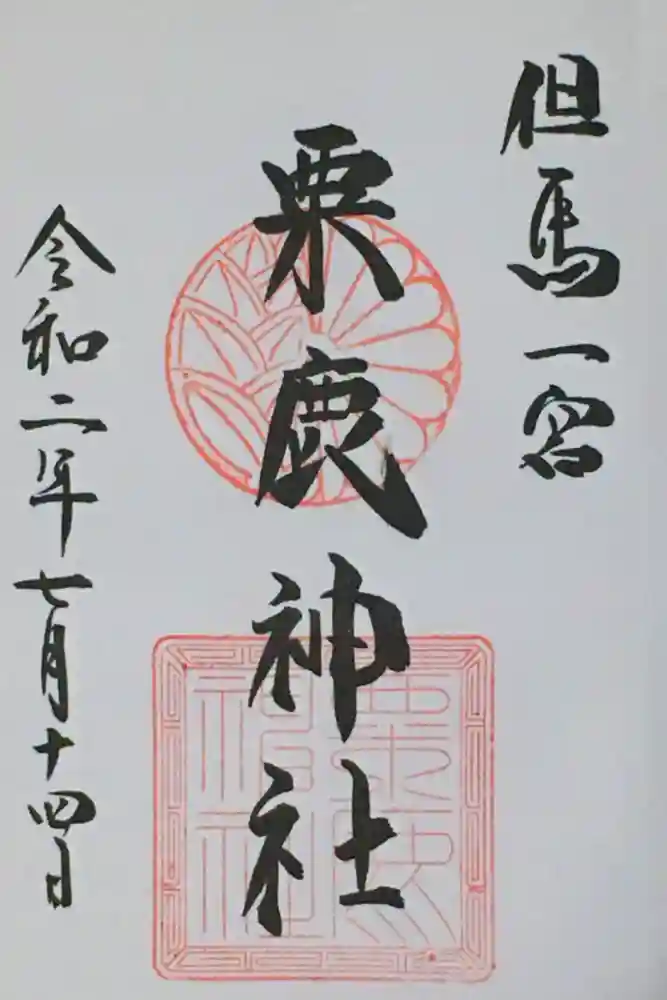 但馬一宮
粟鹿神社
令和二年七月十四日
粟鹿
神社